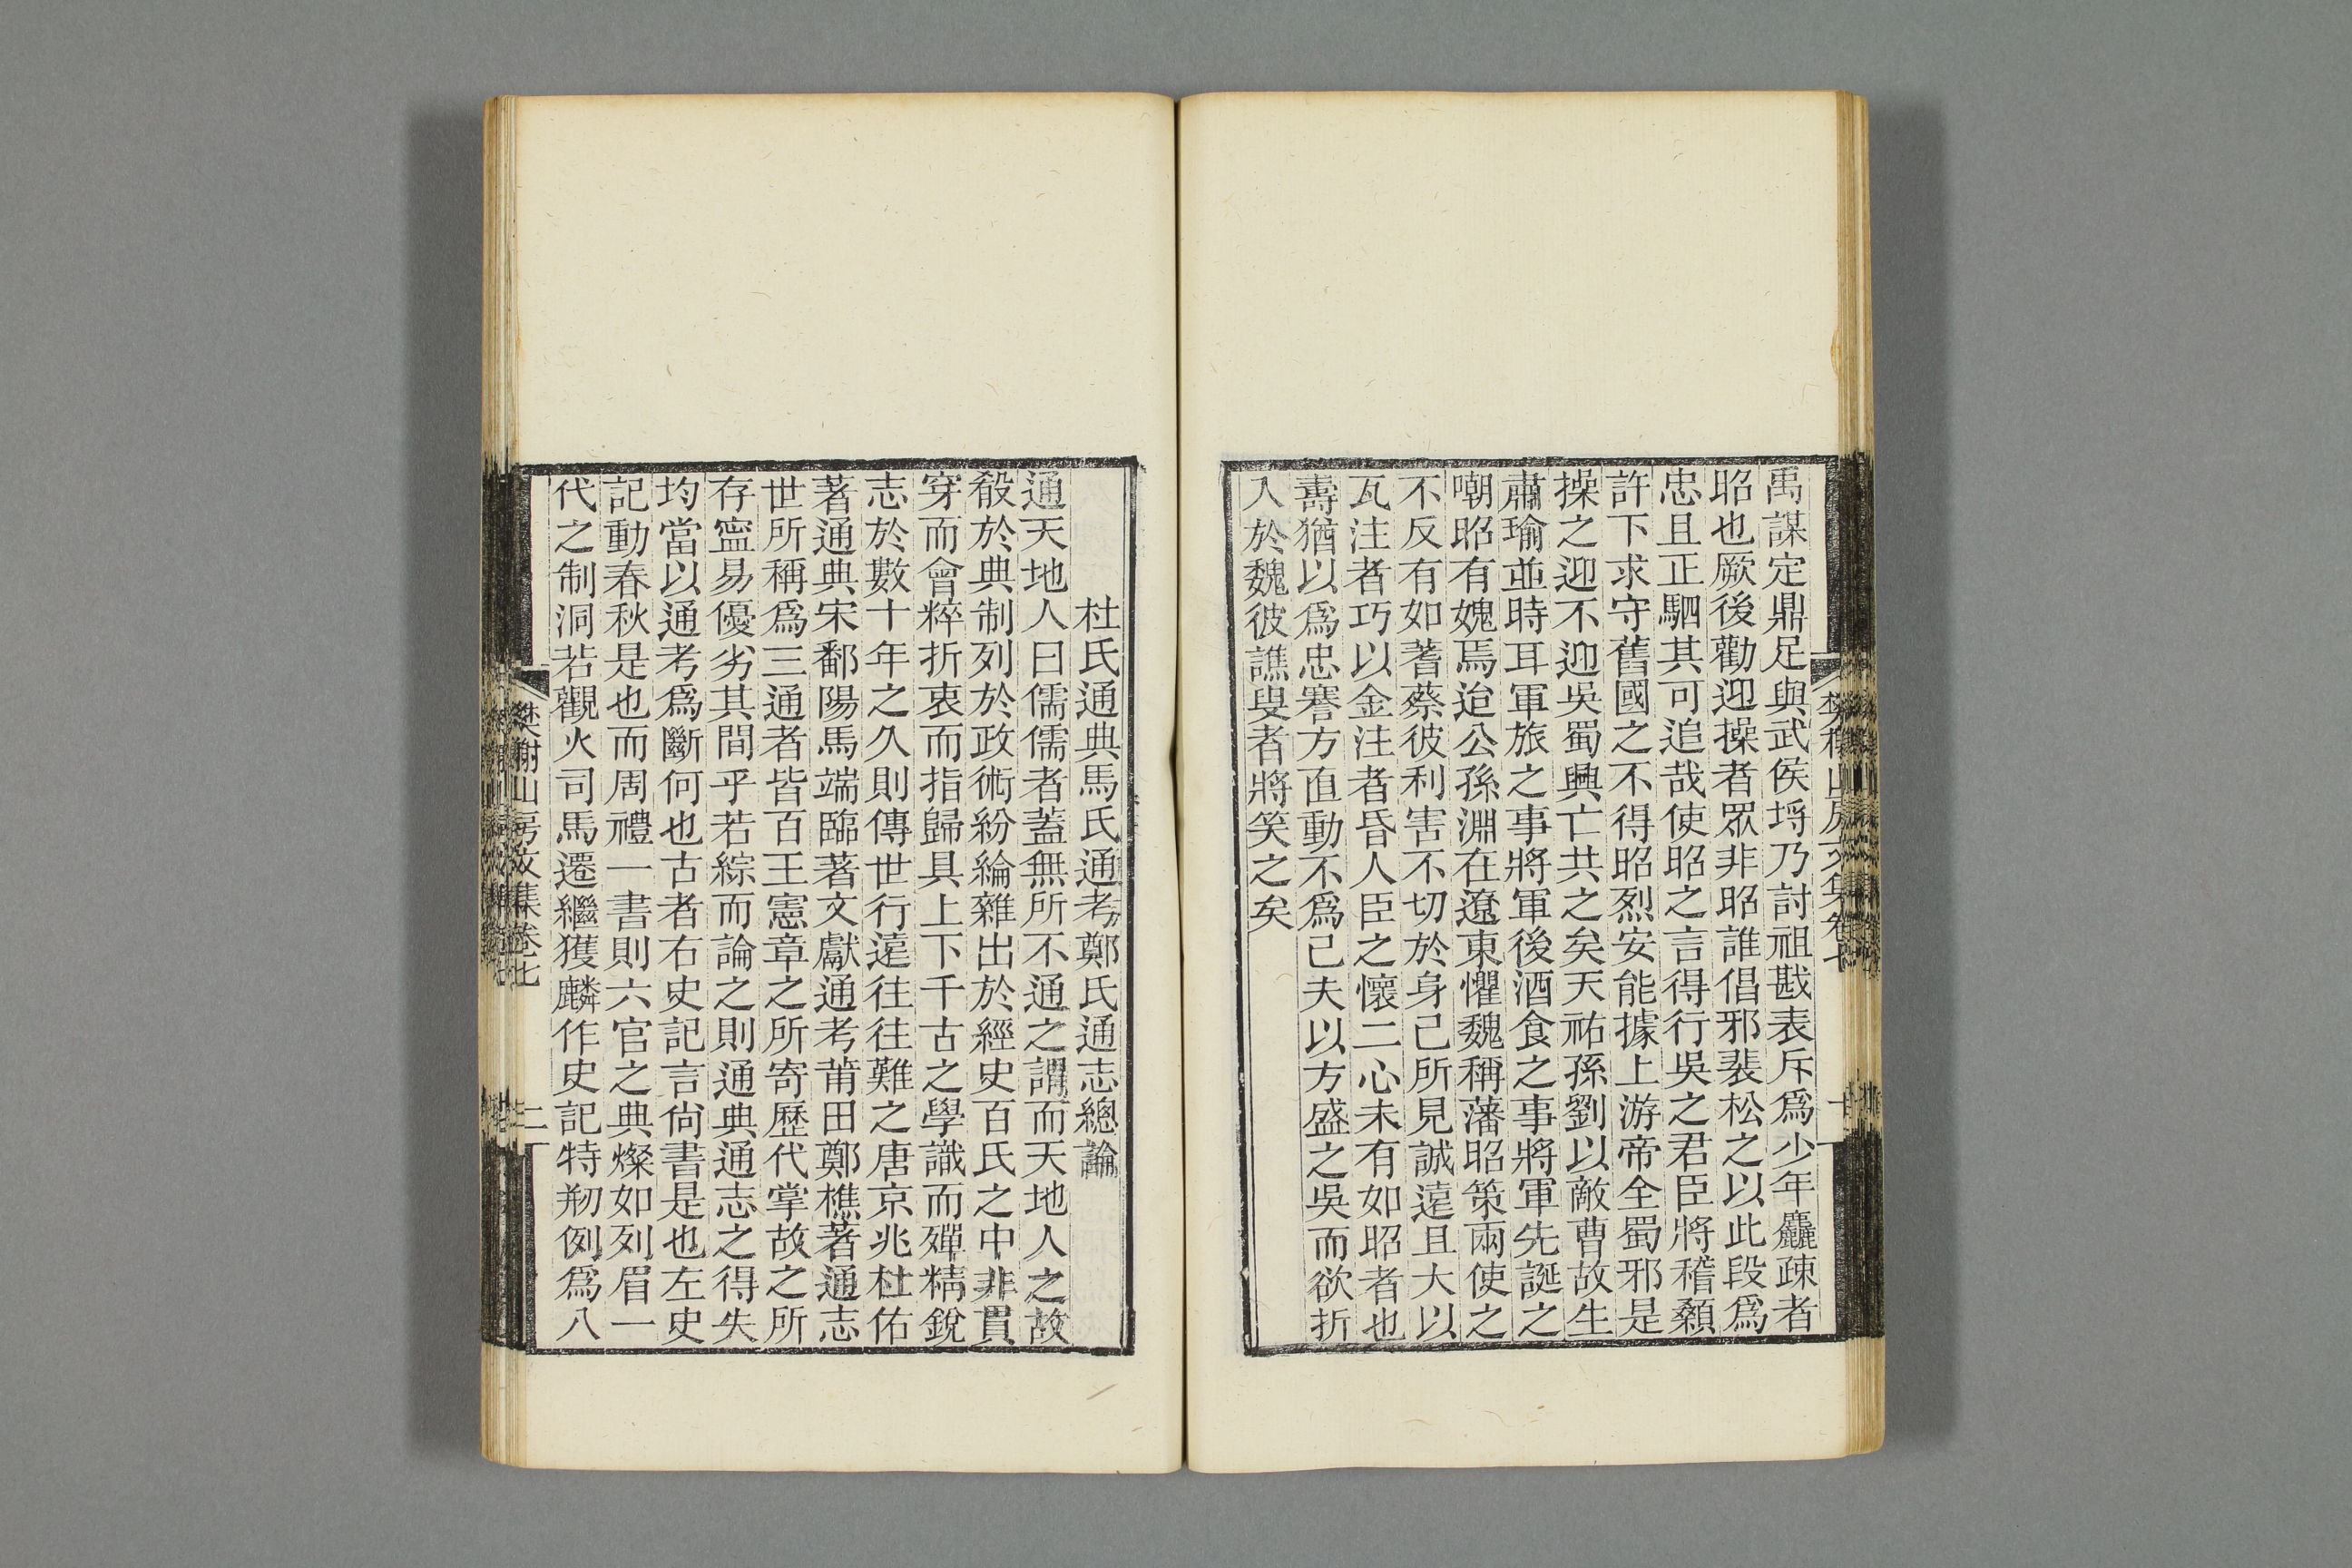 禹謀定鼎足與武侯埒乃討祖戡表斥爲少年麤疎者
昭也厥後勸迎操者眾非昭誰倡邪裴松之以此段爲
忠且正駟其可追哉使昭之言得行吳之君臣將稽顙
許下求守舊國之不得昭烈安能據上游帝全蜀邪是
操之迎不迎吳蜀興亡共之矣天祐孫劉以敵曹故生
肅瑜並時耳軍旅之事將軍後酒食之事將軍先誕之
嘲昭有媿焉迨公孫淵在遼東懼魏稱藩昭策兩使之
不反有如蓍蔡彼利害不切於身己所見誠遠且大以
瓦注者巧以金注者昏人臣之懷二心未有如昭者也
壽猶以爲忠謇方直動不爲己夫以方盛之吳而欲折
入於魏彼譙叟者將笑之矣
杜氏通典馬氏通考鄭氏通志總論
通天地人曰儒儒者蓋無所不通之謂而天地人之故
殽於典制列於政術紛綸雜出於經史百氏之中非貫
穿而會粹折衷而指歸具上下千古之學識而殫精銳
志於數十年之久則傳世行遠往往難之唐京兆杜佑
著通典宋鄱陽馬端臨著文獻通考莆田鄭樵著通志
世所稱爲三通者皆百王憲章之所寄歷代掌故之所
存寍易優劣其間乎若綜而論之則通典通志之得失
均當以通考爲斷何也古者右史記言尙書是也左史
記動春秋是也而周禮一書則六官之典燦如列眉一
代之制洞若觀火司馬遷繼獲麟作史記特剏例爲八
樊榭山房文集卷七